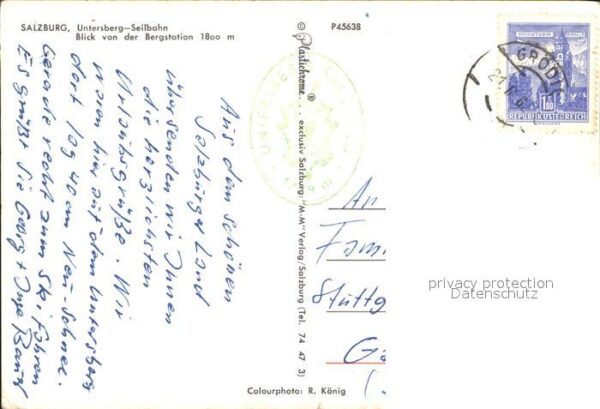 SALZBURG, Untersberg—Seilbahn
Blick von der Bergstation 1800 m
Aus dem schönen
Salzburger Land
übersenden wir Ihnen
die herzlichsten
Urlaubsgrüße. Wir
waren hier auf dem Untersberg
dort lag 40 cm Neu-Schnee.
Gerade recht zum Ski fahren
Es grüßt Sie Georg + Inge
© Plastichrome® ... exclusiv Salzburg: "M-M" Verlag/Salzburg (Tel. 74 47 3)
P45638
GRÖDIG
1.80
REPUBLIK ÖSTERREICH
An
Fam
Stuttg
privacy protection
Datenschutz
Colourphoto: R. König